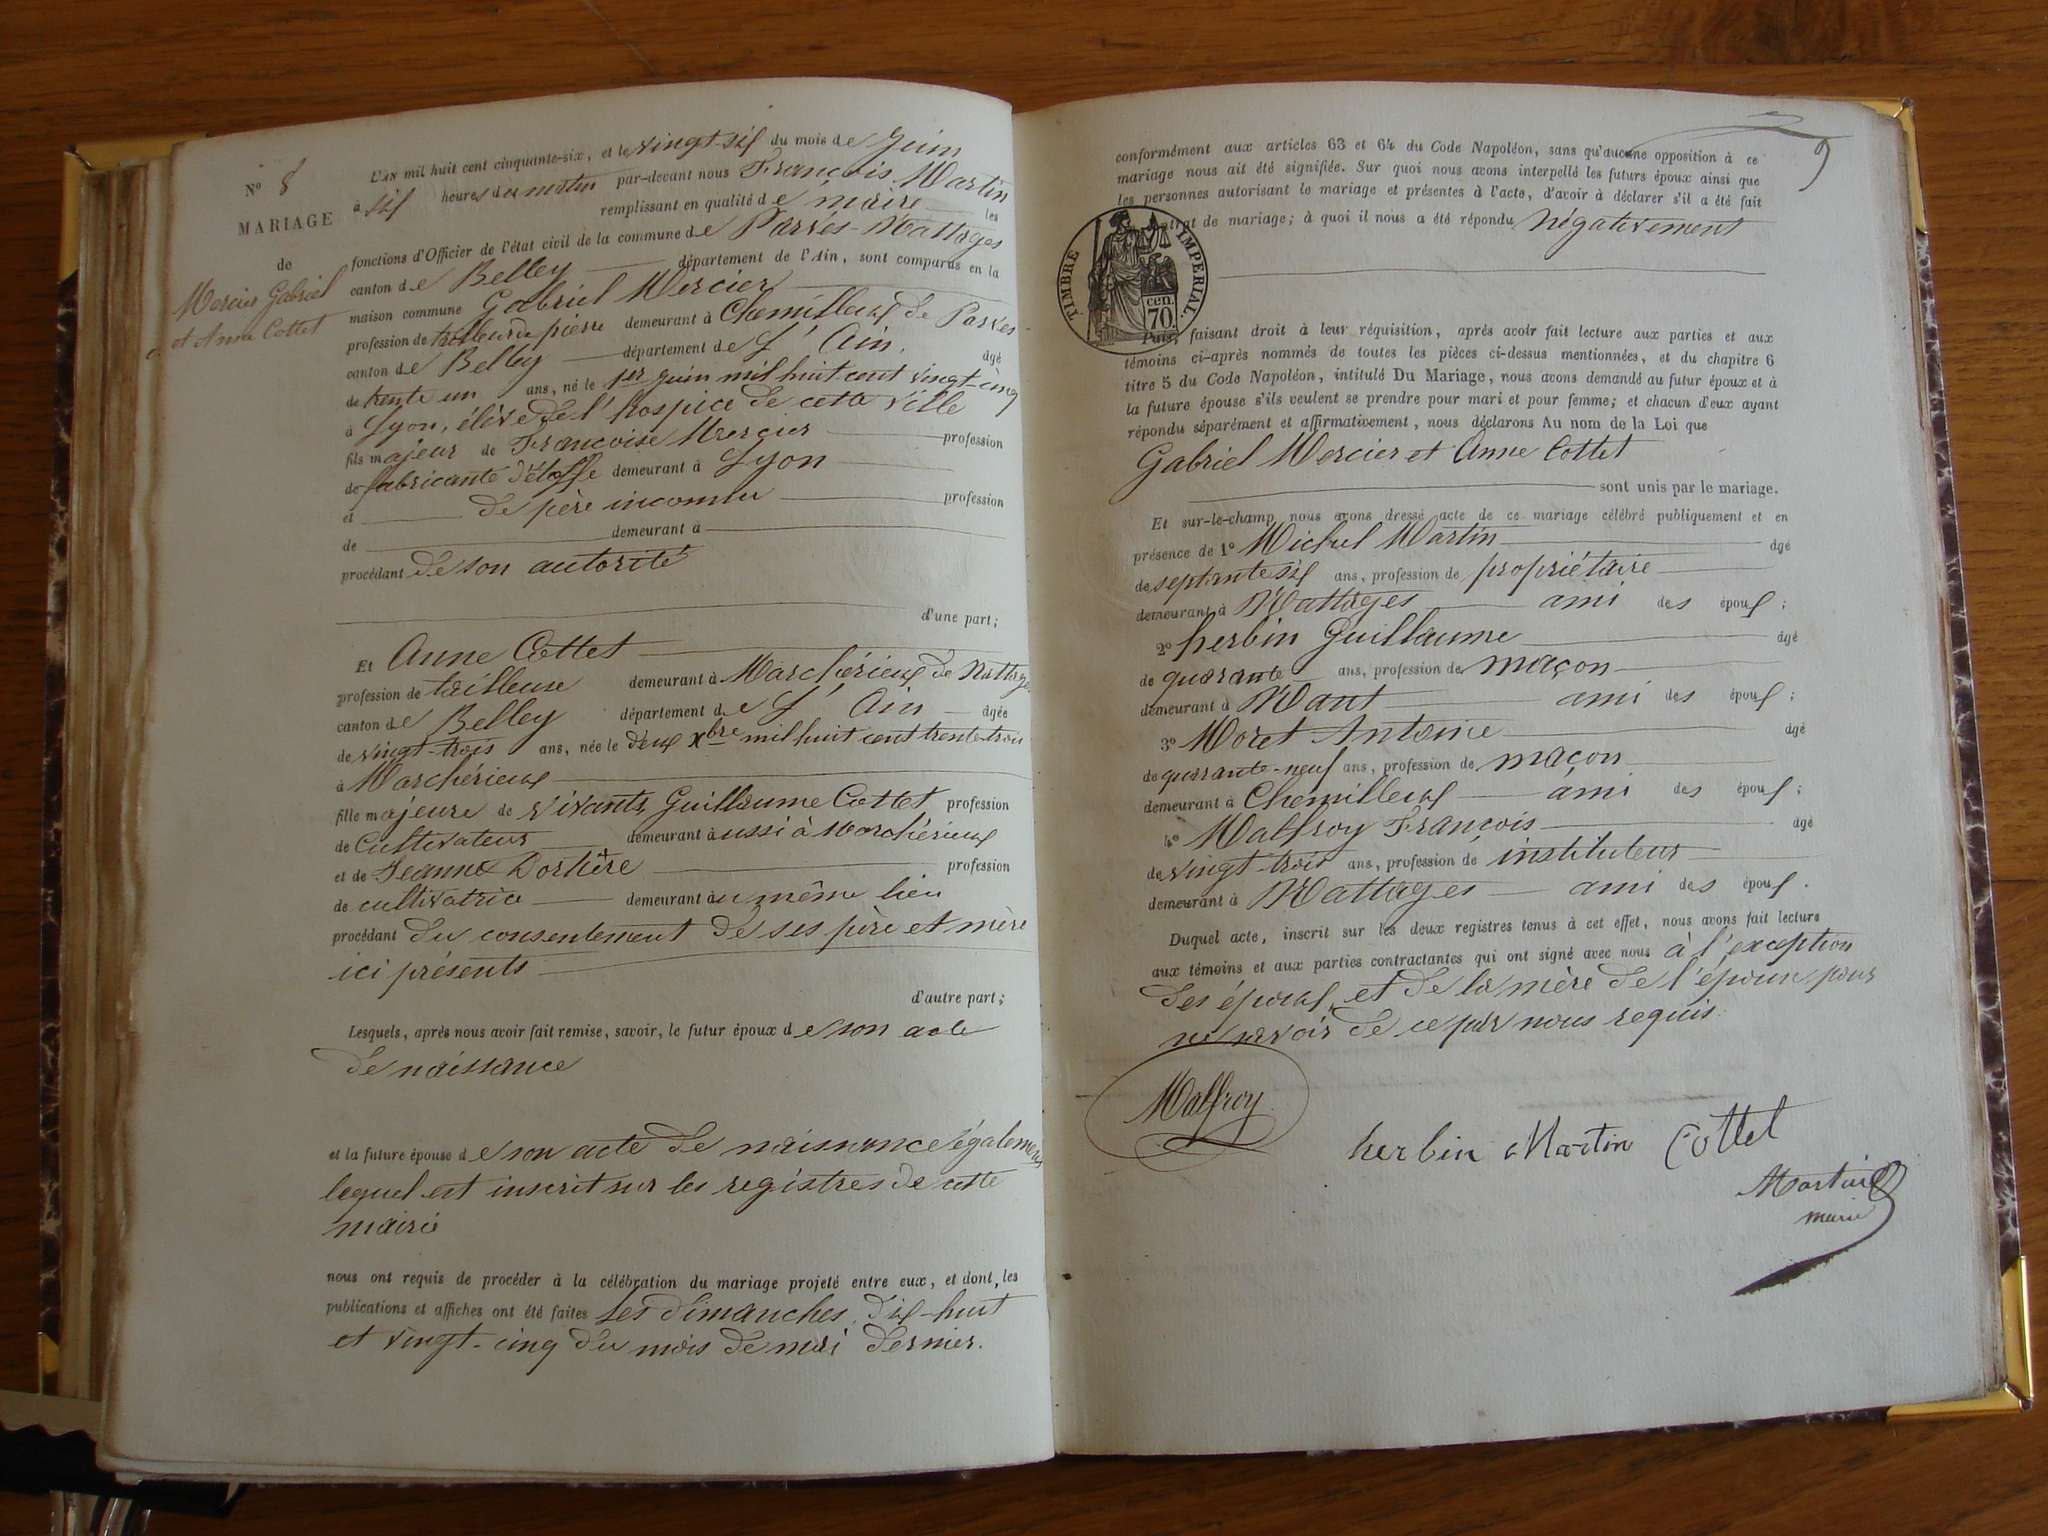 N° 8
MARIAGE
de
Mercier Gabriel
et Anne Cottet
L'AN mil huit cent cinquante-six, et le vingt-six du mois de Juin
à six heures du matin par-devant nous François Martin
remplissant en qualité de maire les
fonctions d'Officier de l'état civil de la commune de Parves-Nattages
canton de Belley département de l'Ain, sont comparus en la
maison commune Gabriel Mercier
profession de tailleur de pierre demeurant à Chemilleux de Parves
canton de Belley département de L'Ain, âgé
de trente un ans, né le 1er juin mil huit cent vingt-cinq
à Lyon, élève de l'hospice de cette ville
fils majeur de Françoise Mercier profession
de fabricante d'étoffe demeurant à Lyon
et de père inconnu profession
de demeurant à
procédant de son autorité
d'une part;
Et Anne Cottet
profession de tailleuse demeurant à Marchérieux de Nattages
canton de Belley département de L'Ain âgée
de vingt-trois ans, née le deux Xbre mil huit cent trente-trois
à Marchérieux
fille majeure de vivants Guillaume Cottet profession
de Cultivateur demeurant aussi à Marchérieux
et de Jeanne Dortière profession
de cultivatrice demeurant au même lieu
procédant du consentement de ses père et mère
ici présents
d'autre part;
Lesquels, après nous avoir fait remise, savoir, le futur époux de son acte
de naissance
et la future épouse de son acte de naissance également
lequel est inscrit sur les registres de cette
mairie
nous ont requis de procéder à la célébration du mariage projeté entre eux, et dont les
publications et affiches ont été faites les dimanches dix-huit
et vingt-cinq du mois de mai dernier.
9
conformément aux articles 63 et 64 du Code Napoléon, sans qu'aucune opposition à ce
mariage nous ait été signifiée. Sur quoi nous avons interpellé les futurs époux ainsi que
les personnes autorisant le mariage et présentes à l'acte, d'avoir à déclarer s'il a été fait
contrat de mariage; à quoi il nous a été répondu négativement
TIMBRE IMPERIAL.
cen.
70.
Puis, faisant droit à leur réquisition, après avoir fait lecture aux parties et aux
témoins ci-après nommés de toutes les pièces ci-dessus mentionnées, et du chapitre 6
titre 5 du Code Napoléon, intitulé Du Mariage, nous avons demandé au futur époux et à
la future épouse s'ils veulent se prendre pour mari et pour femme; et chacun d'eux ayant
répondu séparément et affirmativement, nous déclarons Au nom de la Loi que
Gabriel Mercier et Anne Cottet
sont unis par le mariage.
Et sur-le-champ nous avons dressé acte de ce mariage célébré publiquement et en
présence de 1° Michel Martin âgé
de septante six ans, profession de propriétaire
demeurant à Nattages ami des époux;
2° herbin Guillaume âgé
de quarante ans, profession de maçon
demeurant à Nant ami des époux;
3° Moret Antoine âgé
de quarante-neuf ans, profession de maçon
demeurant à Chemilleux ami des époux;
4° Malfroy François âgé
de vingt-trois ans, profession de instituteur
demeurant à Nattages ami des époux.
Duquel acte, inscrit sur les deux registres tenus à cet effet, nous avons fait lecture
aux témoins et aux parties contractantes qui ont signé avec nous à l'exception
des époux, et de la mère de l'épouse pour
ne savoir de ce par nous requis
Malfroy
herbin Martin Cottet
Martin
maire